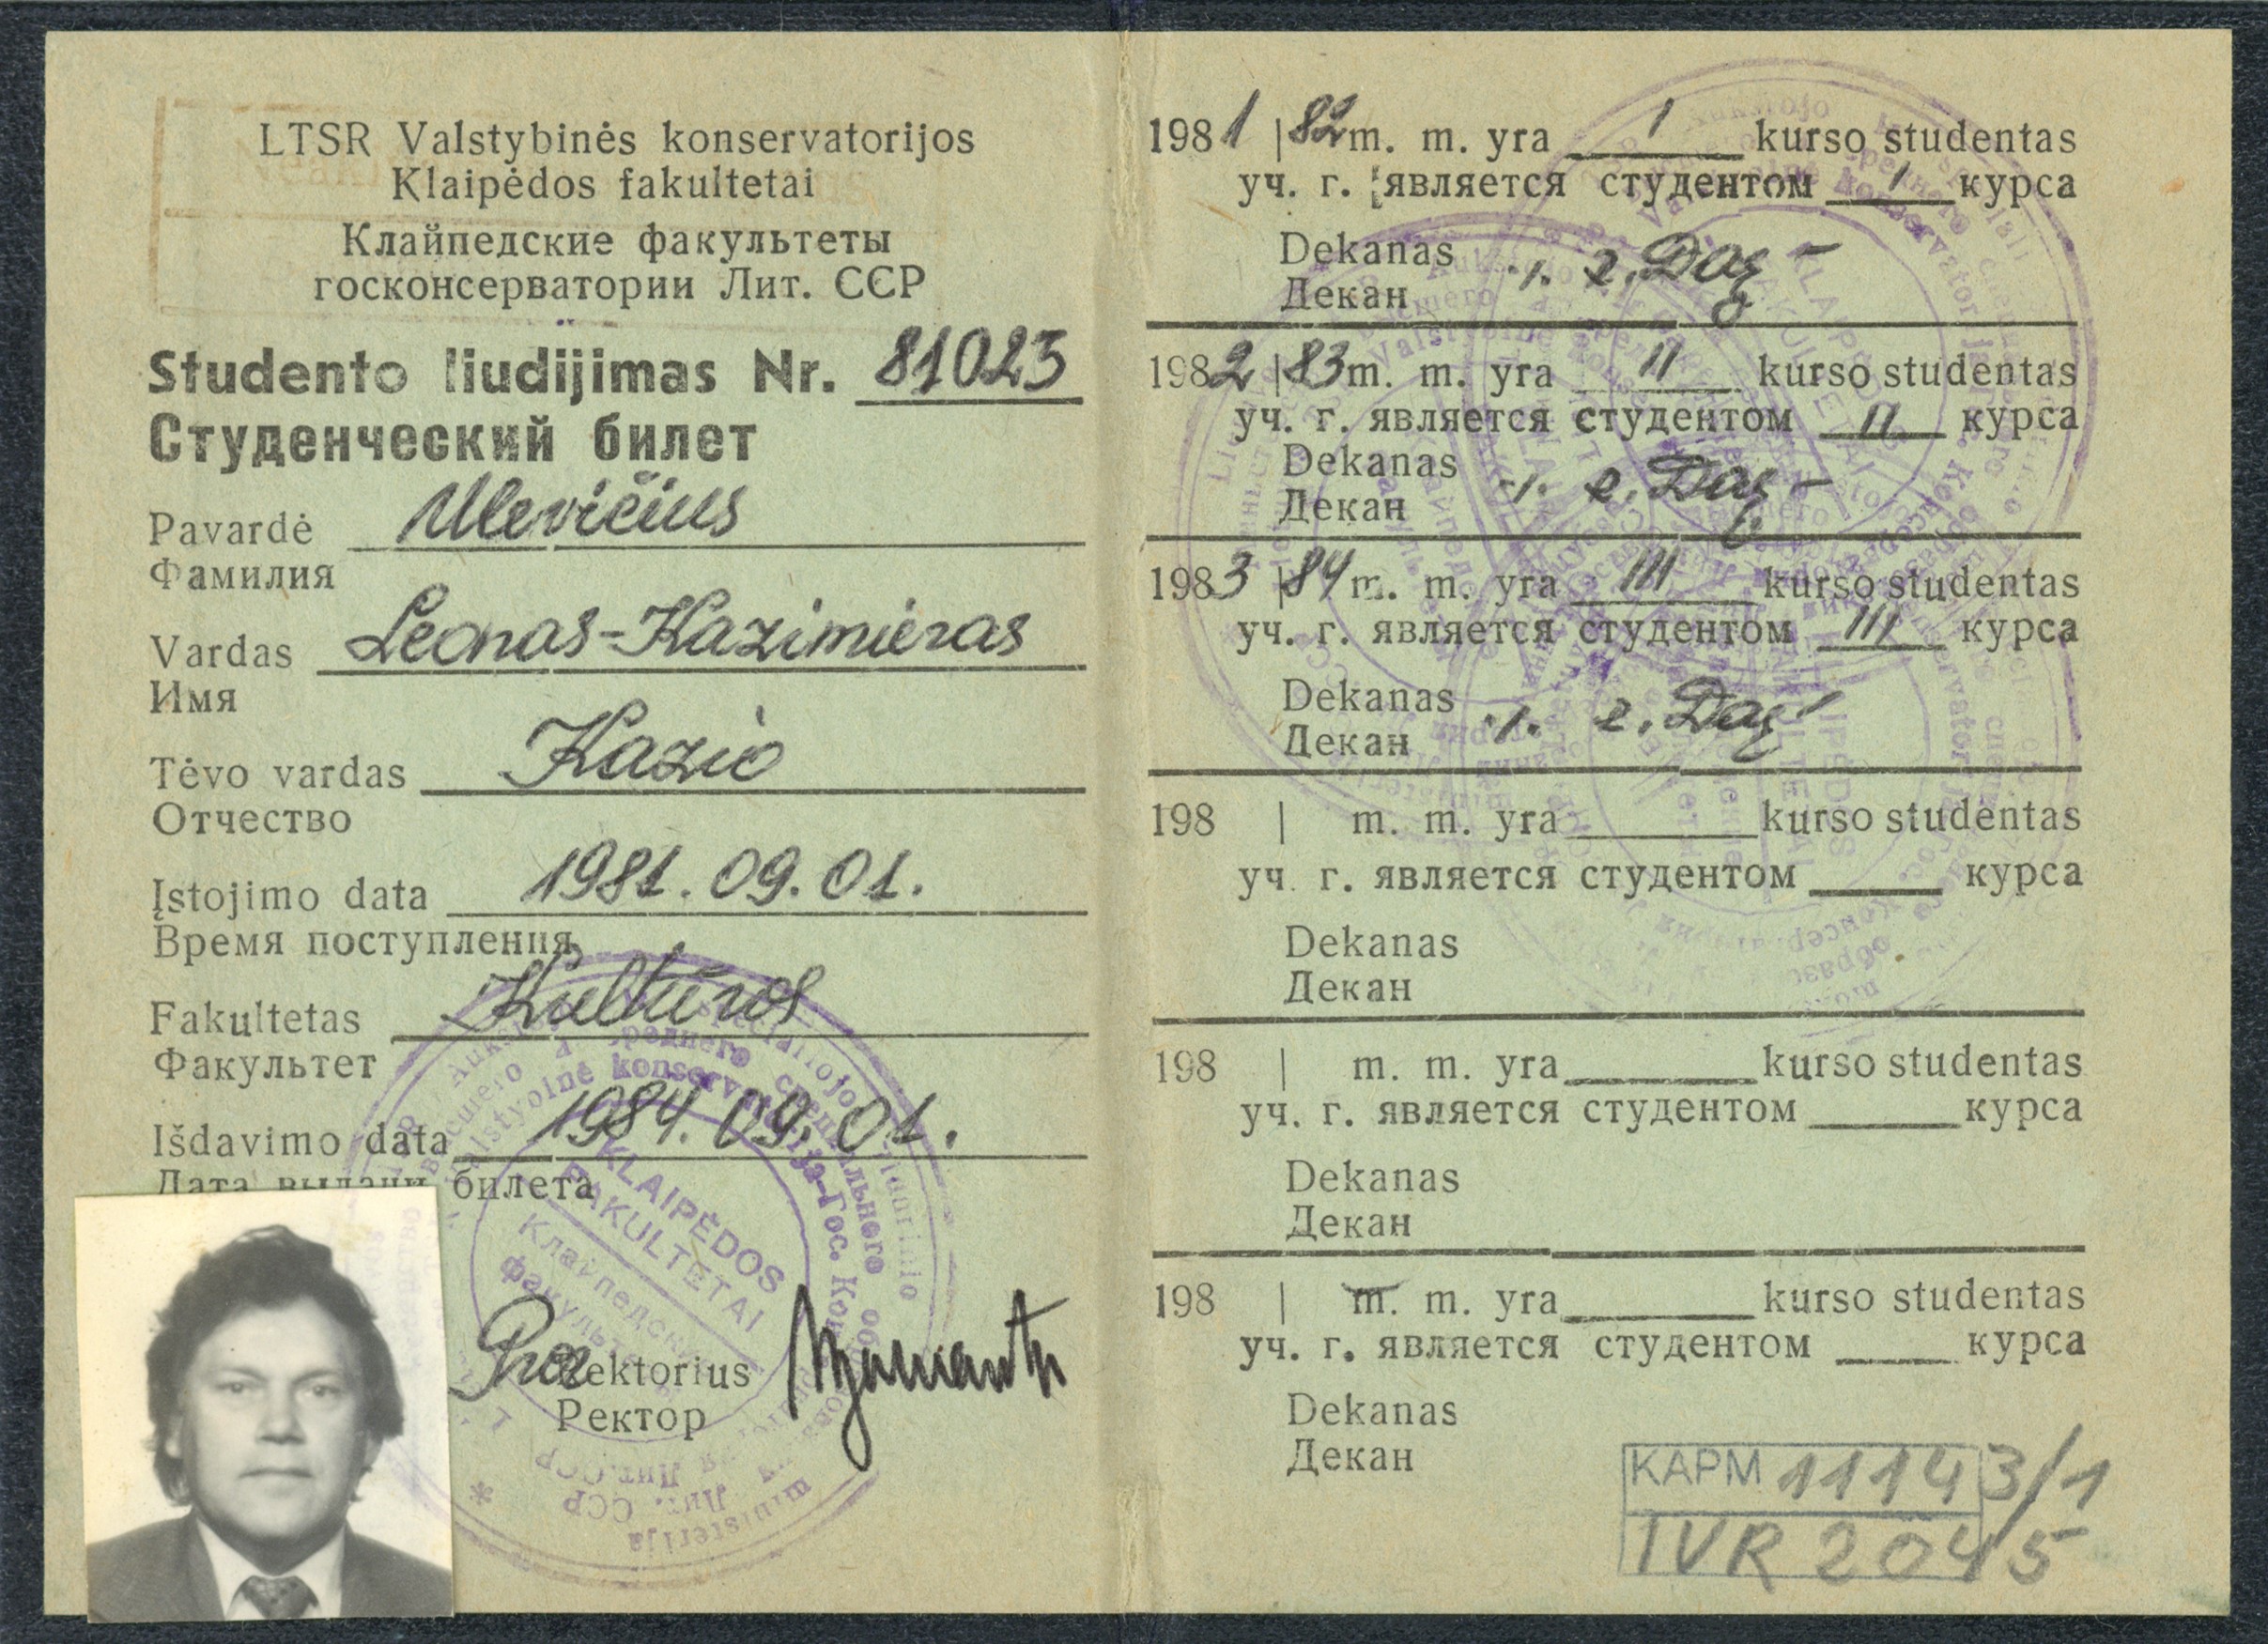 LTSR Valstybinės konservatorijos
Klaipėdos fakultetai
Клайпедские факультеты
госконсерватории Лит. ССР
Studento liudijimas Nr. 81023
Студенческий билет
Pavardė Ulevičius
Фамилия
Vardas Leonas-Kazimieras
Имя
Tėvo vardas Kazio
Отчество
Įstojimo data 1981.09.01.
Время поступления
Fakultetas Kultūros
Факультет
Išdavimo data 1984.09.01.
Дата выдачи билета
KLAIPĖDOS
FAKULTETAI
Rektorius
Ректор
1981 | 82 m. m. yra I kurso studentas
уч. г. является студентом I курса
Dekanas
Декан
1982 | 83 m. m. yra II kurso studentas
уч. г. является студентом II курса
Dekanas
Декан
1983 | 84 m. m. yra III kurso studentas
уч. г. является студентом III курса
Dekanas
Декан
198 | m. m. yra kurso studentas
уч. г. является студентом курса
Dekanas
Декан
198 | m. m. yra kurso studentas
уч. г. является студентом курса
Dekanas
Декан
198 | m. m. yra kurso studentas
уч. г. является студентом курса
Dekanas
Декан
KAPM 11143/1
IVR 2045